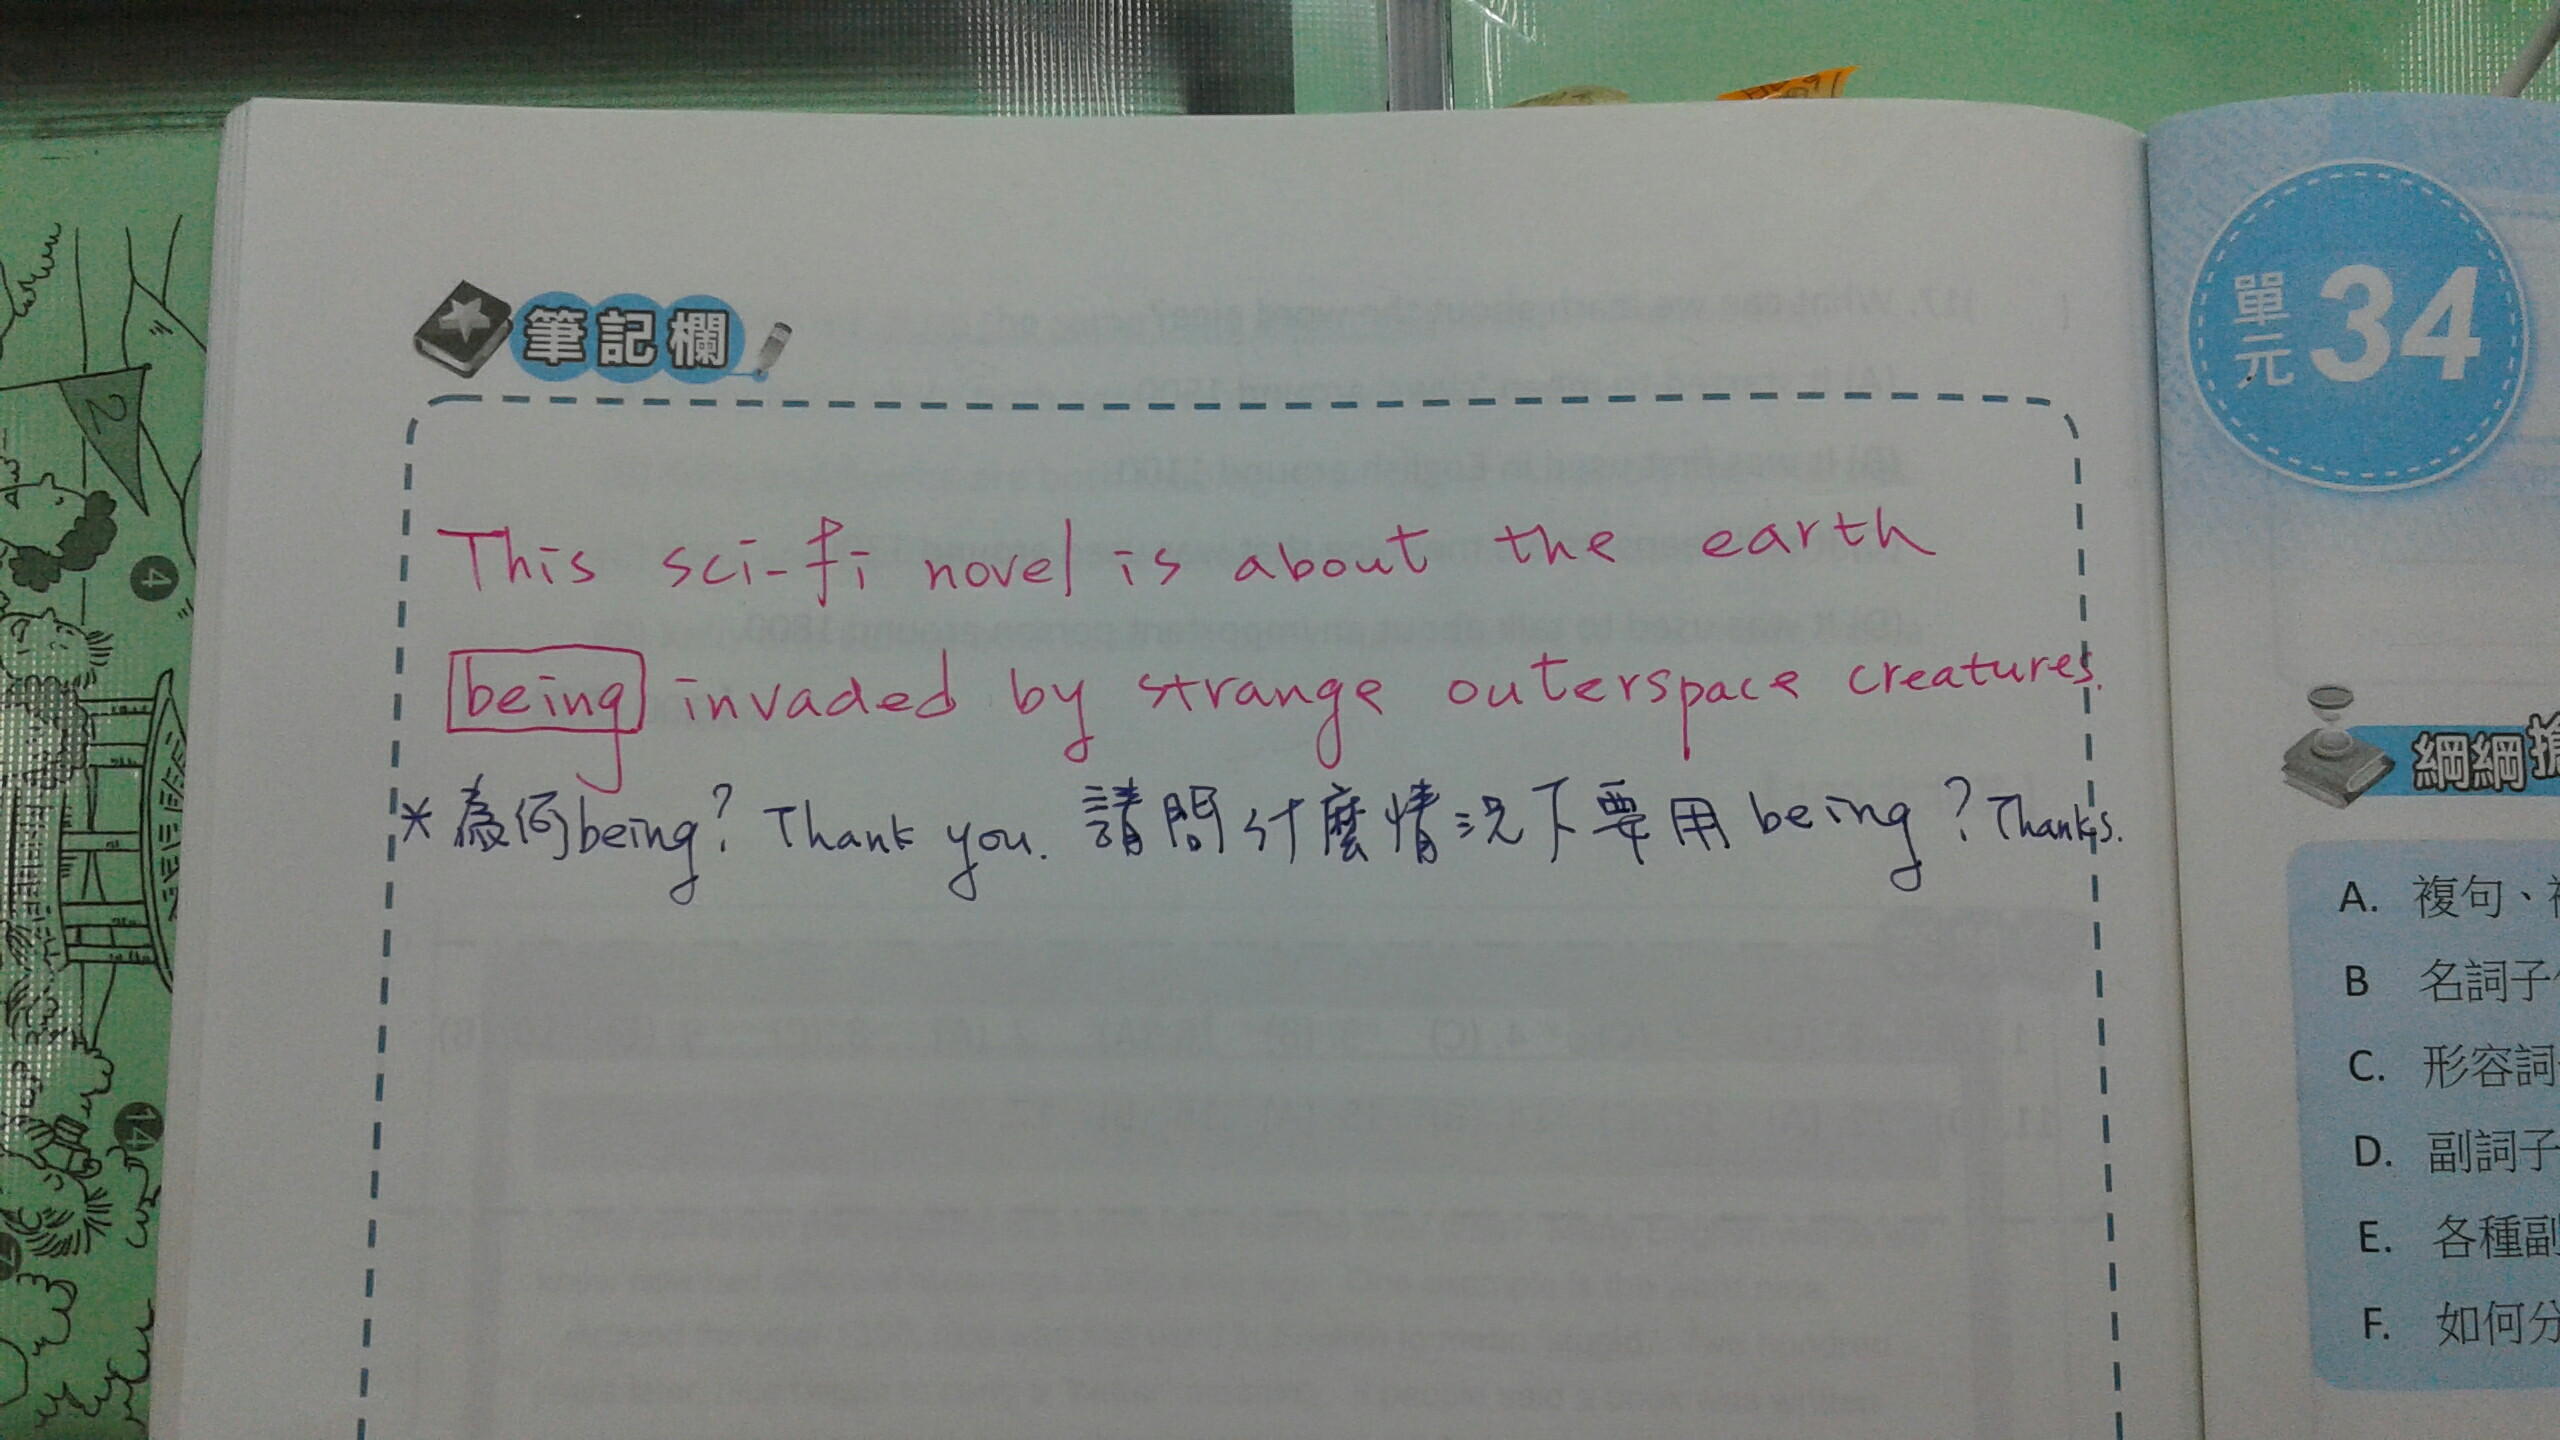 筆記欄
This sci-fi novel is about the earth
being invaded by strange outerspace creatures.
*為何being? Thank you. 請問什麼情況下要用 being? Thanks.
單元 34
綱綱搶
A. 複句、
B 名詞子
C. 形容詞
D. 副詞子
E. 各種副
F. 如何分
2
4
14